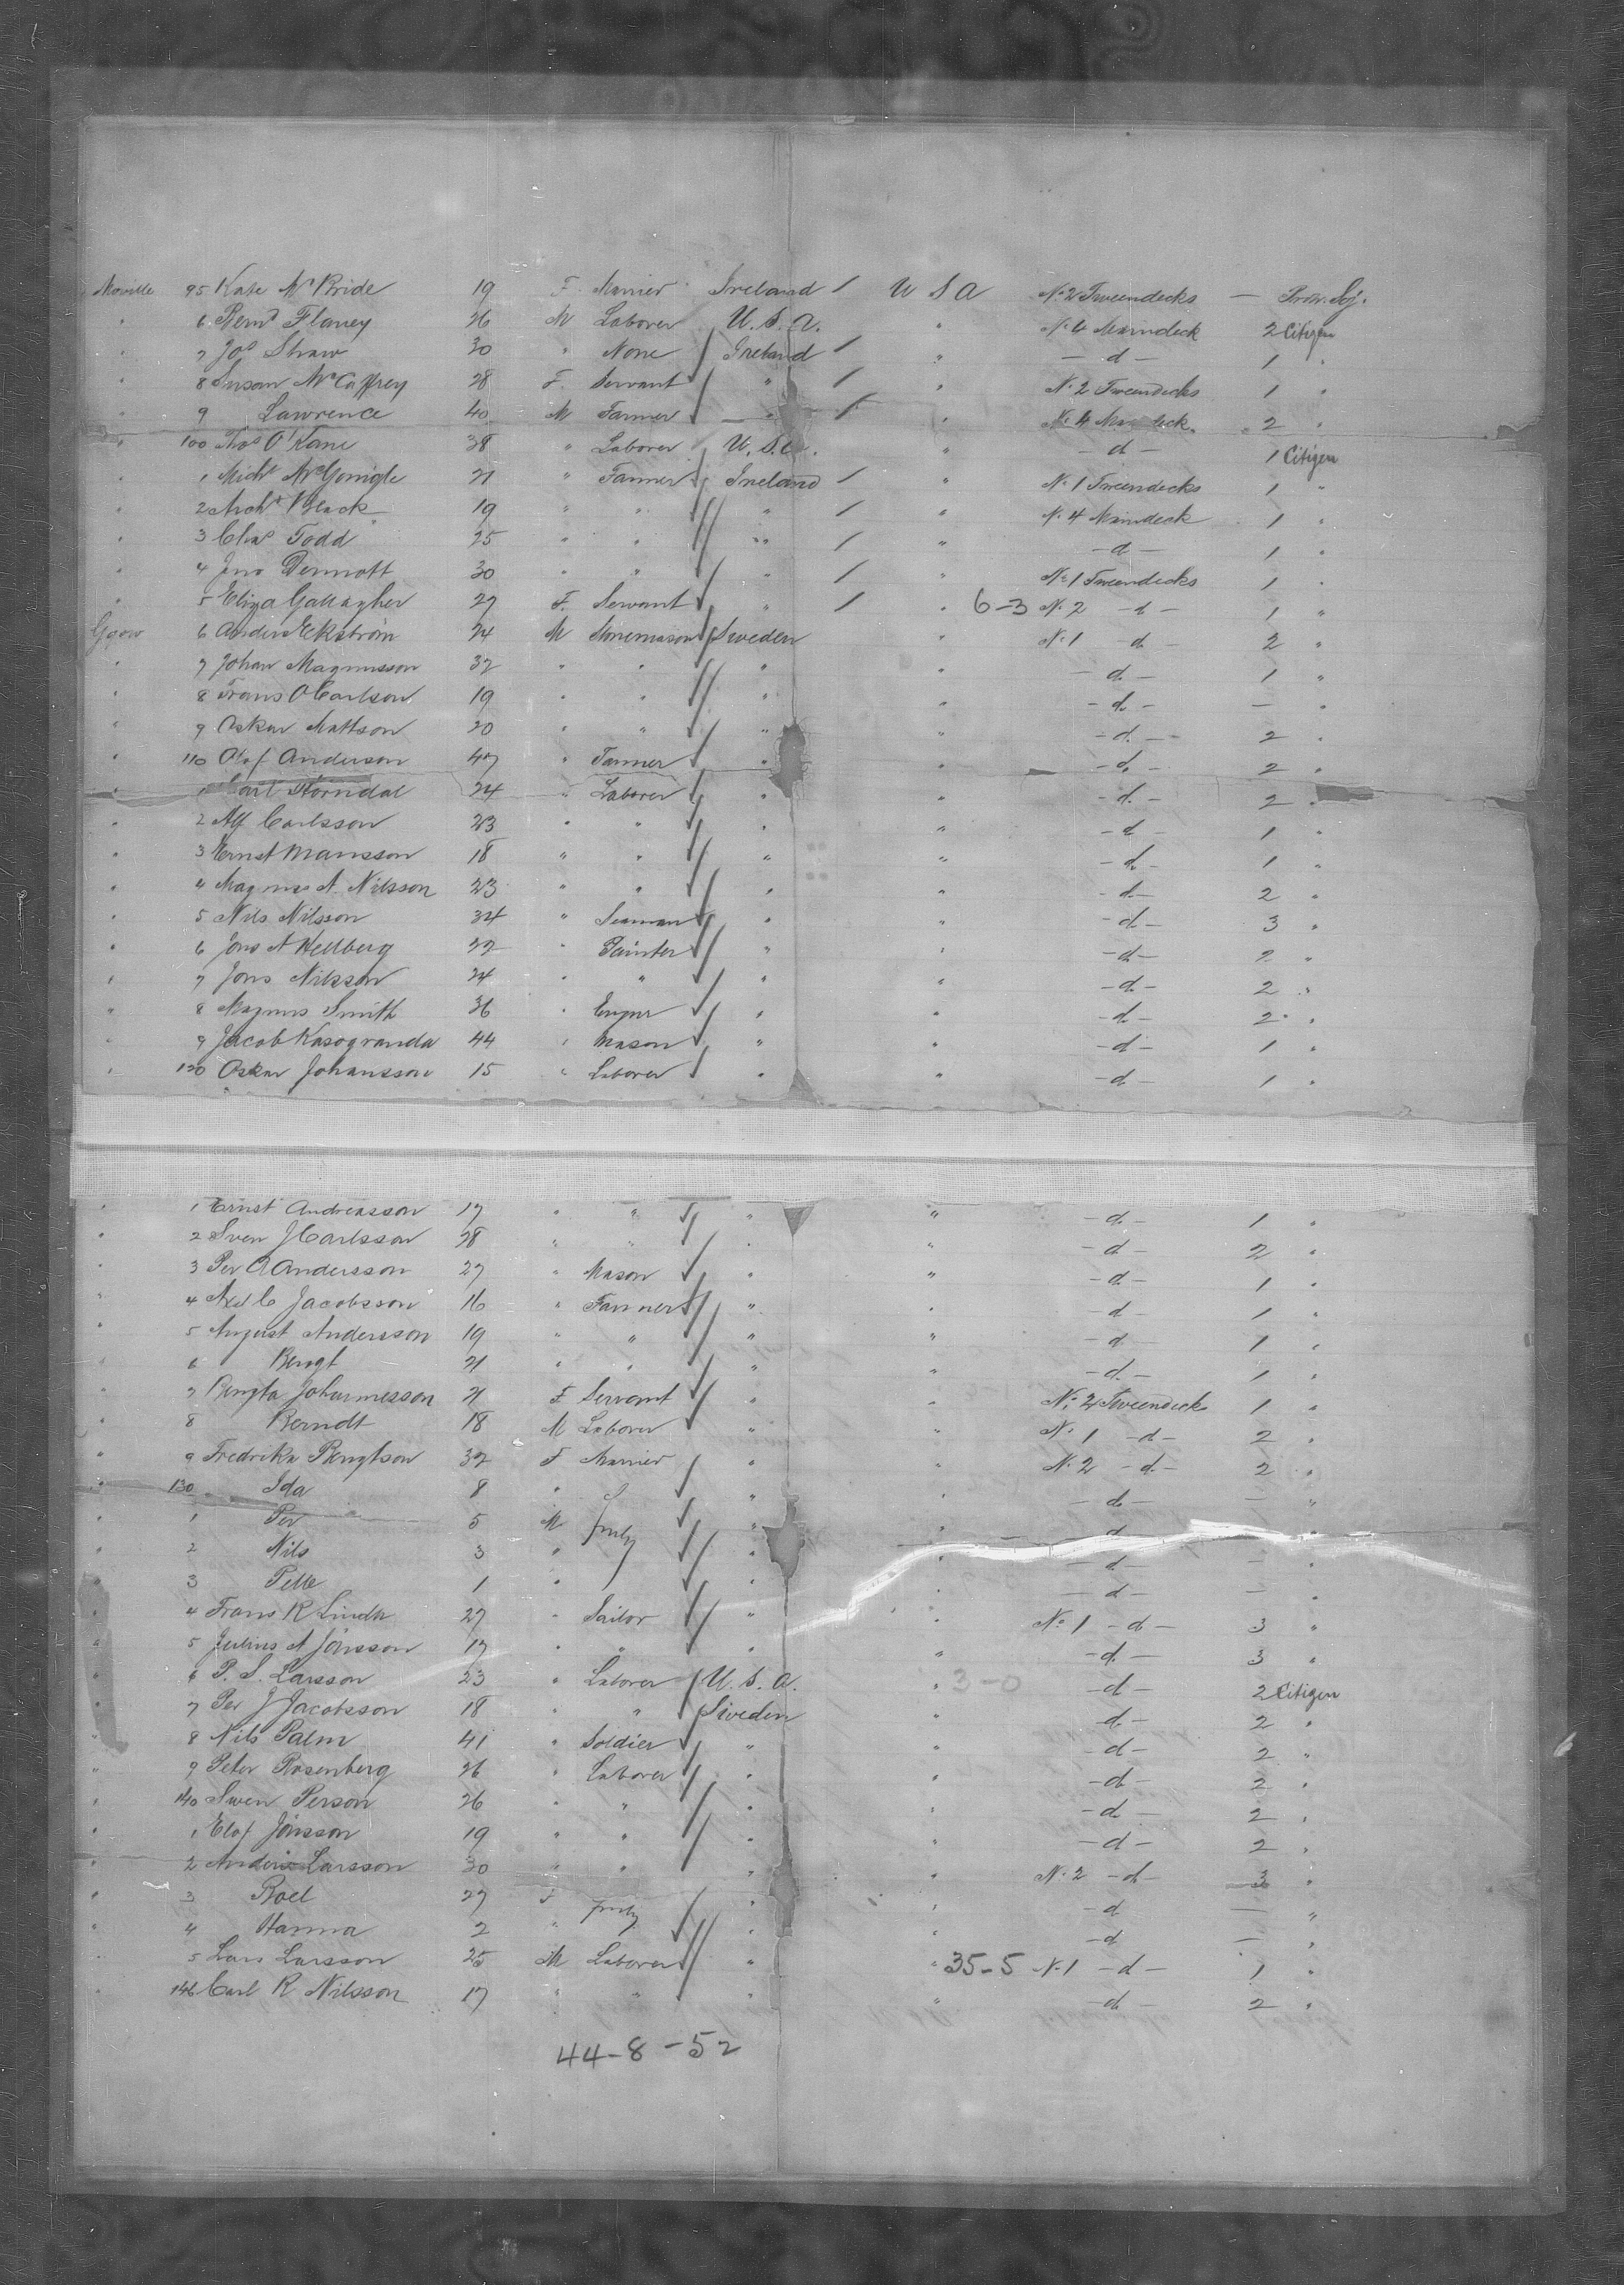 Moville 95 Kate McBride 19 F. Marrier Ireland / U S A No 2 Tweendecks — Pro. Soj.
" 6 Bernd Flaney 26 M Laborer U.S.A. " No 4 Maindeck 2 Citizen
" 7 Jos Shaw 30 " None / Ireland / " — d — 1 "
" 8 Susan McCaffrey 28 F. Servant " / " No 2 Tweendecks 1 "
" 9 Lawrence 40 M Farmer — " / " No 4 Maindeck 2 "
" 100 Thos O'Kane 38 " Laborer U.S.A. " — d — 1 Citizen
" 1 Michl McGonigle 21 " Farmer Ireland / " No 1 Tweendecks 1 "
" 2 Archd Black 19 " " " / " No 4 Maindeck 1 "
" 3 Chas Todd 25 " " " / " — d — 1 "
" 4 Jno Dermott 30 " " " / " No 1 Tweendecks 1 "
" 5 Eliza Gallagher 27 F. Servant " / " 6-3 No 2 — d — 1 "
Ggow 6 Anders Ekström 24 M Stonemason Sweden " No 1 — d — 2 "
" 7 Johan Magnusson 32 " " " " — d — 1 "
" 8 Frans O Carlson 19 " " " " — d — — "
" 9 Oskar Mattson 20 " " " " — d — 2 "
" 110 Olof Anderson 47 " Farmer " " — d — 2 "
" 1 Carl Störndal 24 " Laborer " " — d — 2 "
" 2 Alf Carlsson 23 " " " " — d — 1 "
" 3 Ernst Mansson 18 " " " " — d — 1 "
" 4 Magnus A. Nilsson 23 " " " " — d — 2 "
" 5 Nils Nilsson 34 " Seaman " " — d — 3 "
" 6 Jons A Hellberg 22 " Painter " " — d — 2 "
" 7 Jons Nilsson 24 " " " " — d — 2 "
" 8 Magnus Smith 36 " Engnr " " — d — 2 "
" 9 Jacob Kasogranda 44 " Mason " " — d — 1 "
" 120 Oskar Johansson 15 " Laborer " " — d — 1 "
" 1 Ernst Andreasson 17 " " " " — d — 1 "
" 2 Sven J Carlsson 28 " " " " — d — 2 "
" 3 Per A Andersson 27 " Mason " " — d — 1 "
" 4 Axel C Jacobsson 16 " Farmer " " — d — 1 "
" 5 August Andersson 19 " " " " — d — 1 "
" 6 Bengt 21 " " " " — d — 1 "
" 7 Bengta Johannesson 21 F Servant " " No 2 Tweendecks 1 "
" 8 Berndt 18 M Laborer " " No 1 — d — 2 "
" 9 Fredrika Bengtson 32 F Marrier " " No 2 — d — 2 "
" 130 Ida 8 " " " — d — — "
" 1 Per 5 M fmly " " — d — — "
" 2 Nils 3 " " " — d — — "
" 3 Pelle 1 " " " — d — — "
" 4 Frans R Lindh 27 " Sailor " " No 1 — d — 3 "
" 5 Julius A Jönsson 17 " " " " — d — 3 "
" 6 P. S. Larsson 23 " Laborer U.S.A. " 3-0 — d — 2 Citizen
" 7 Per J Jacobsson 18 " " Sweden " — d — 2 "
" 8 Nils Palm 41 " Soldier " " — d — 2 "
" 9 Peter Rosenberg 26 " Laborer " " — d — 2 "
" 140 Swen Person 26 " " " " — d — 2 "
" 1 Elof Jönsson 19 " " " " — d — 2 "
" 2 Anders Larsson 30 " " " " No 2 — d — 3 "
" 3 Boel 27 F fmly " " — d — "
" 4 Hanna 2 " " " — d — "
" 5 Lars Larsson 25 M Laborer " " 35-5 No 1 — d — 1 "
146 Carl R Nilsson 17 " " " " — d — 2 "
44-8-52